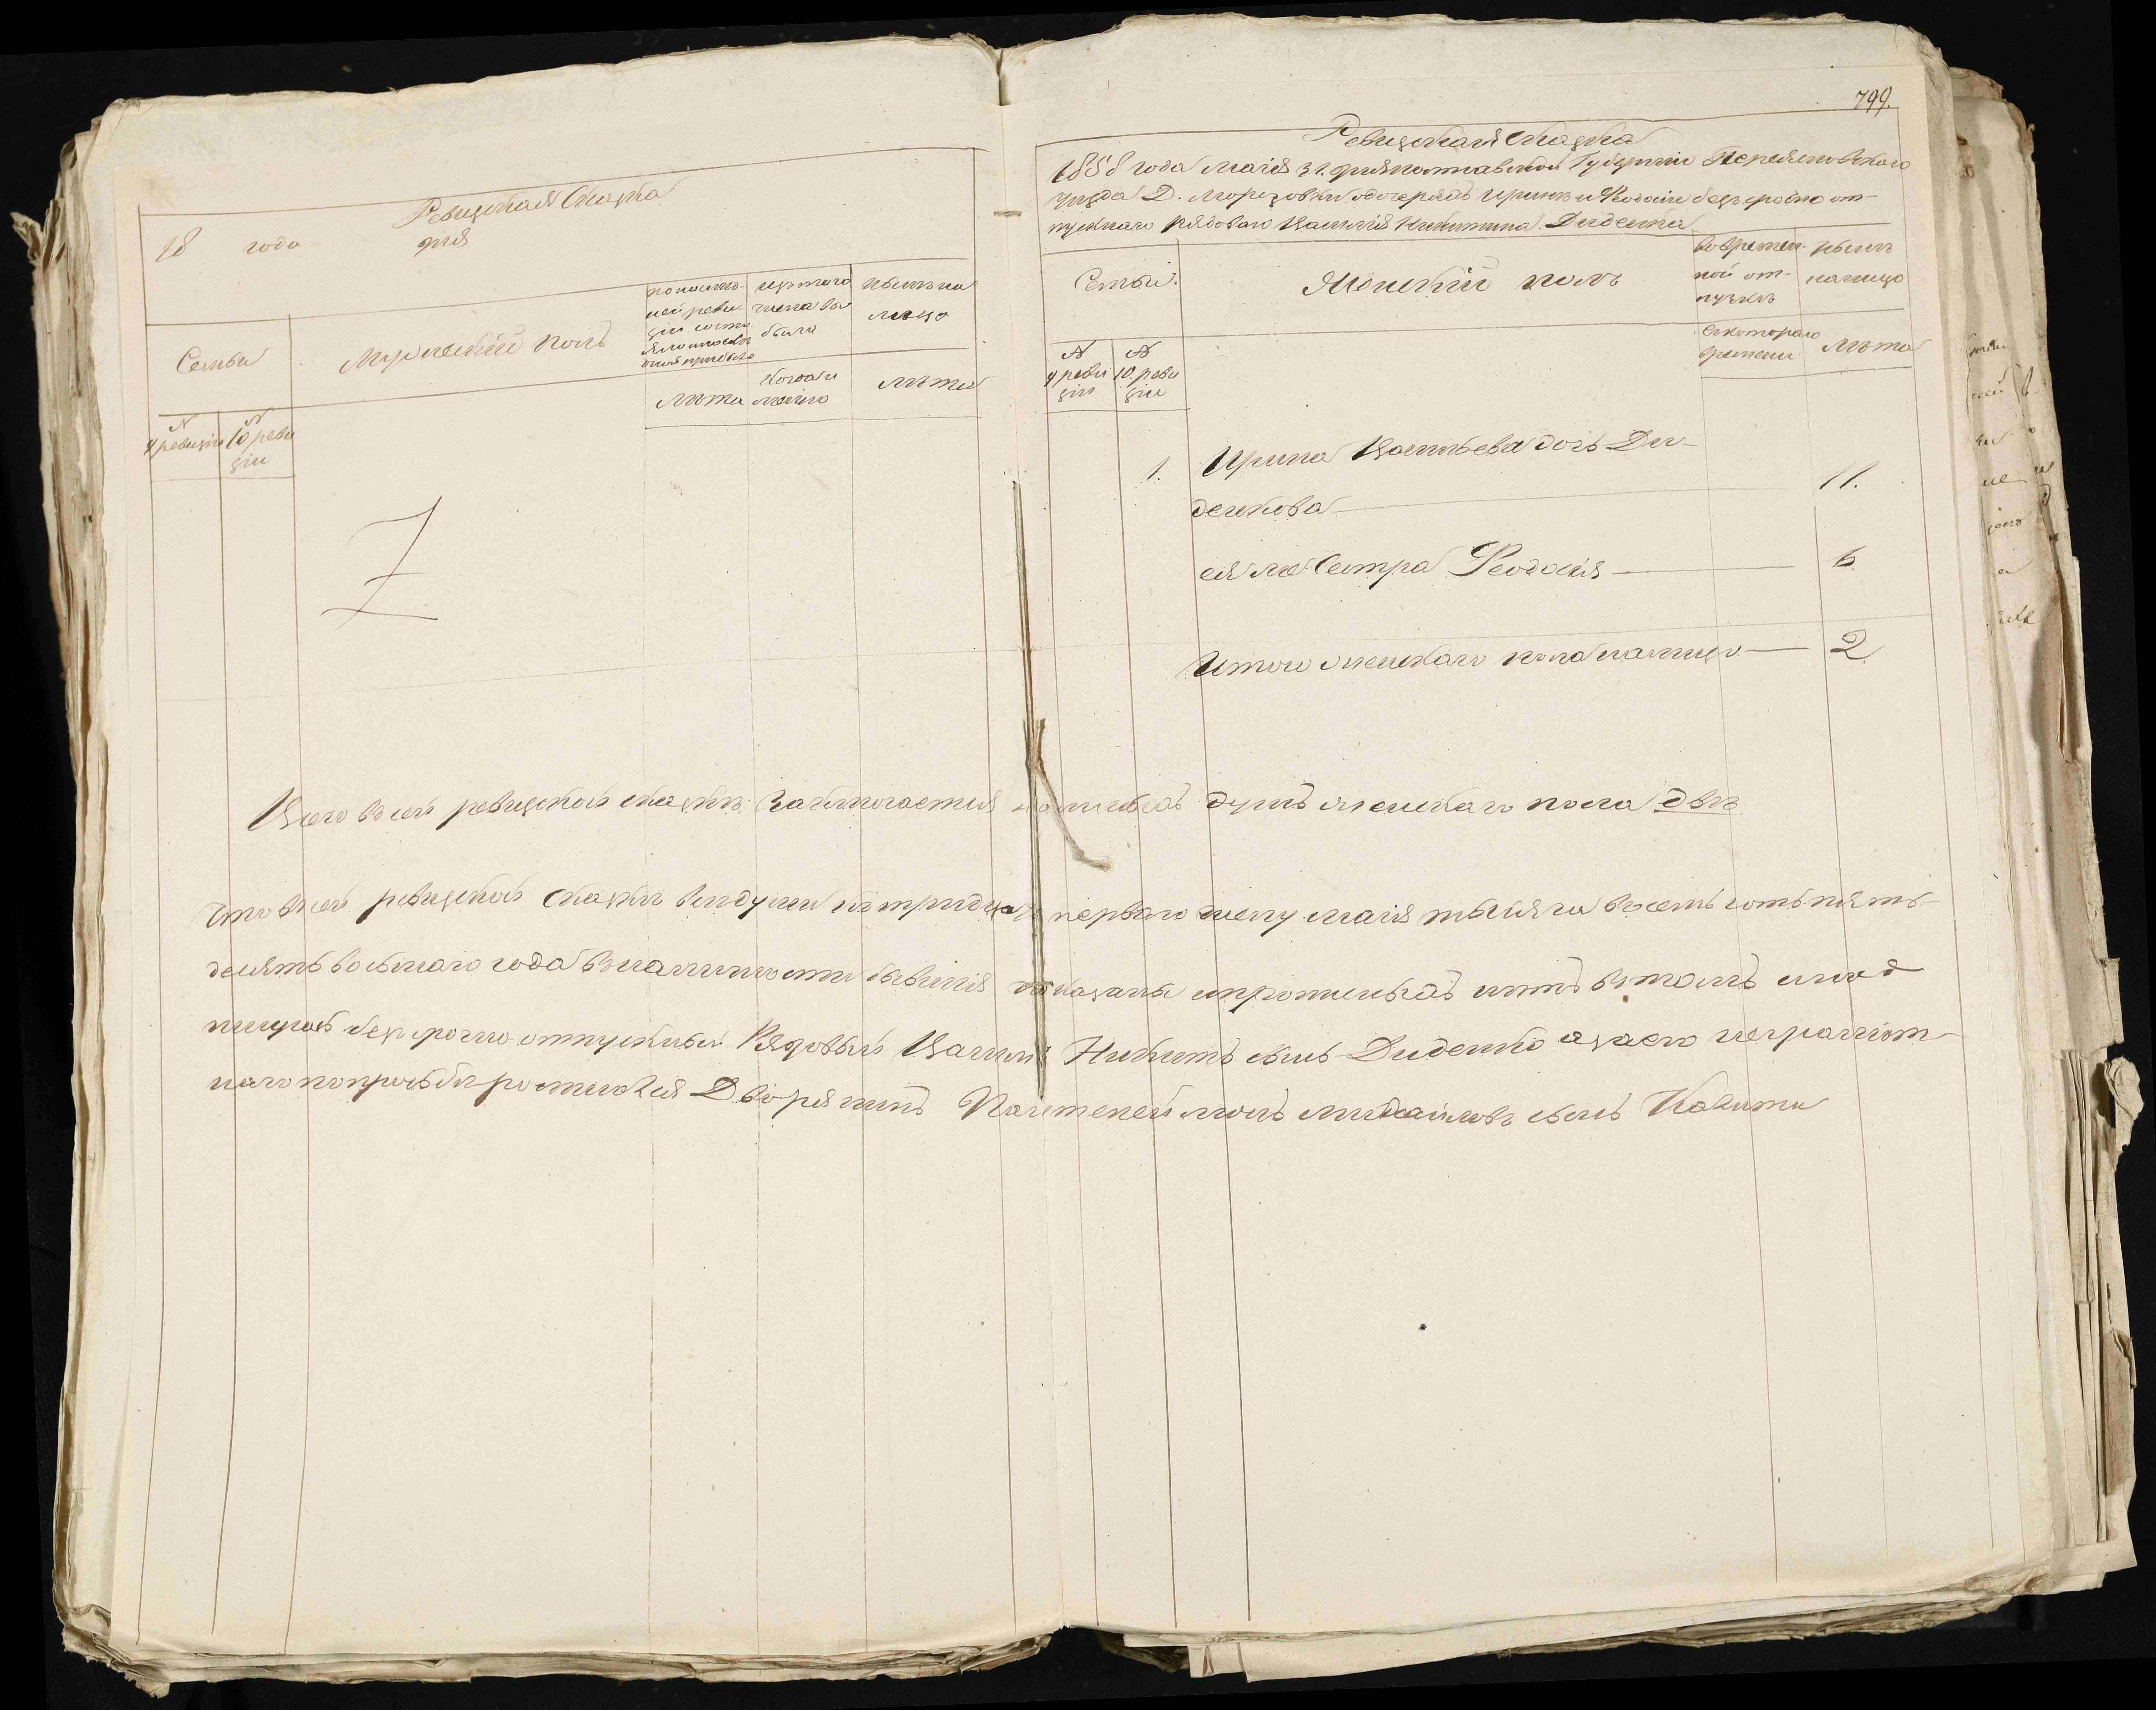 Ревизская Сказка
18 года дня
Семьи
Мужескій полъ
по послѣд-
ней реви
зіи состо
яло и послѣ
оной прибыло
изъ того
числа вы
было
нынѣ на
лицо
Лѣта
Когда и
Лѣта
№
9 ревизіи
№
10 реви
зіи
799.
Ревизская Сказка
1858 года Маія 31. дня Полтавской Губерніи Переяславскаго
уѣзда Д. Морозовки о дочеряхъ Иринѣ и Ѳеодосіи безсрочно от-
пускнаго Рядоваго Василія Никитина Диденка
Семьи.
Женскій полъ
во времен-
ной от-
лучкѣ
нынѣ
налицо
съ котораго
времени
Лѣта
№
9 реви
зіи
№
10. реви
зіи
1. Ирина Васильева дочь Ди-
денкова 11.
ея же Сестра Ѳеодосія 6
Итого женскаго пола налицо 2
Всего въ сей ревизской сказкѣ заключается наличныхъ душъ женскаго пола двѣ
Что въ сей ревизской сказкѣ всѣ души къ тридцать первому числу Маія тысяча восемь сотъ пять-
десятъ восьмаго года въ наличности бывшія показаны и пропускныхъ нѣтъ въ томъ и под
пишусь безсрочно отпускный Рядовый Василій Никитъ сынъ Диденко а за его неграмот-
наго по прозбѣ росписался Дворянинъ Пантелеймонъ Михаиловъ сынъ